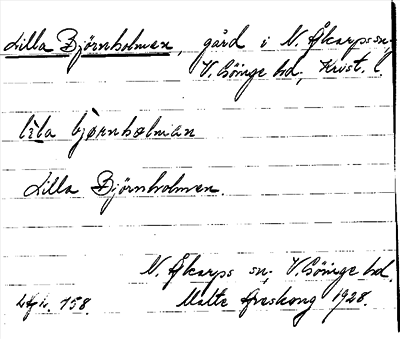 Lilla Björnholmen, gård i N. Åkarps sn,
V. Göinge hd, Krist. l.
lìla bjørnhòlmàn
Lilla Björnholmen.
N. Åkarps sn, V. Göinge hd.
158. Malte Areskoug 1928.